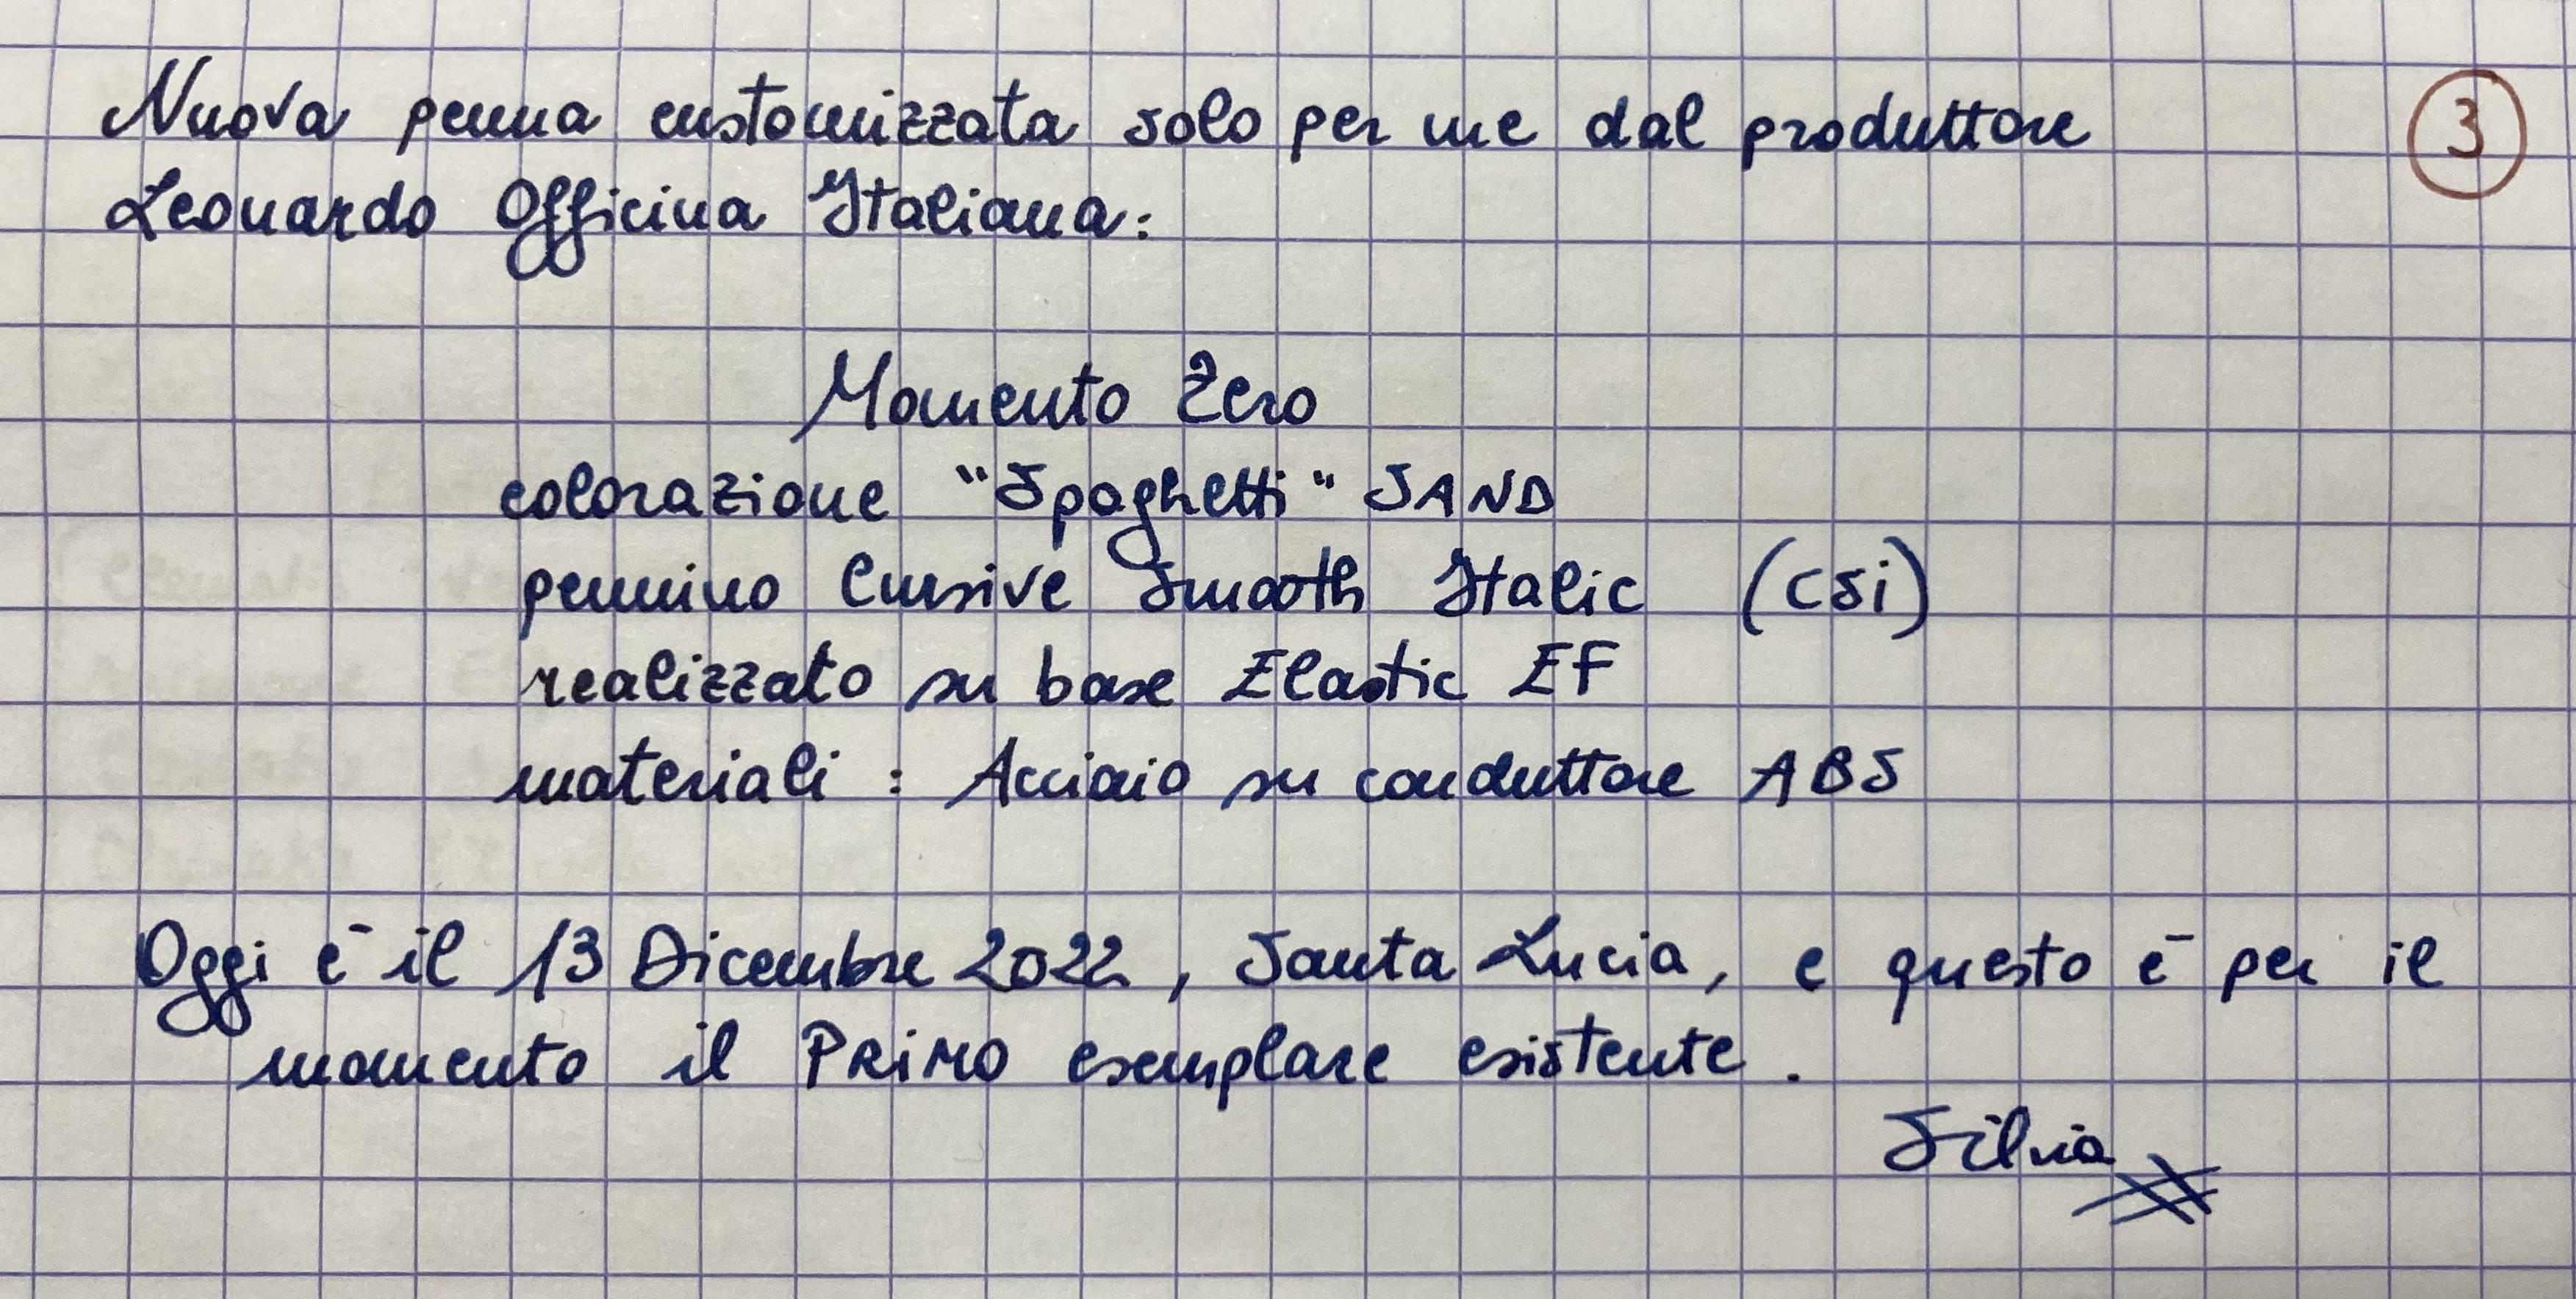 Nuova penna customizzata solo per me dal produttore
3
Leonardo Officina Italiana:
Momento Zero
colorazione "Spaghetti" SAND
pennino Cursive Smooth Italic (CSi)
realizzato su base Elastic EF
materiali : Acciaio su conduttore ABS
Oggi è il 13 Dicembre 2022, Santa Lucia, e questo è per il
momento il PRiMO esemplare esistente.
Silvia